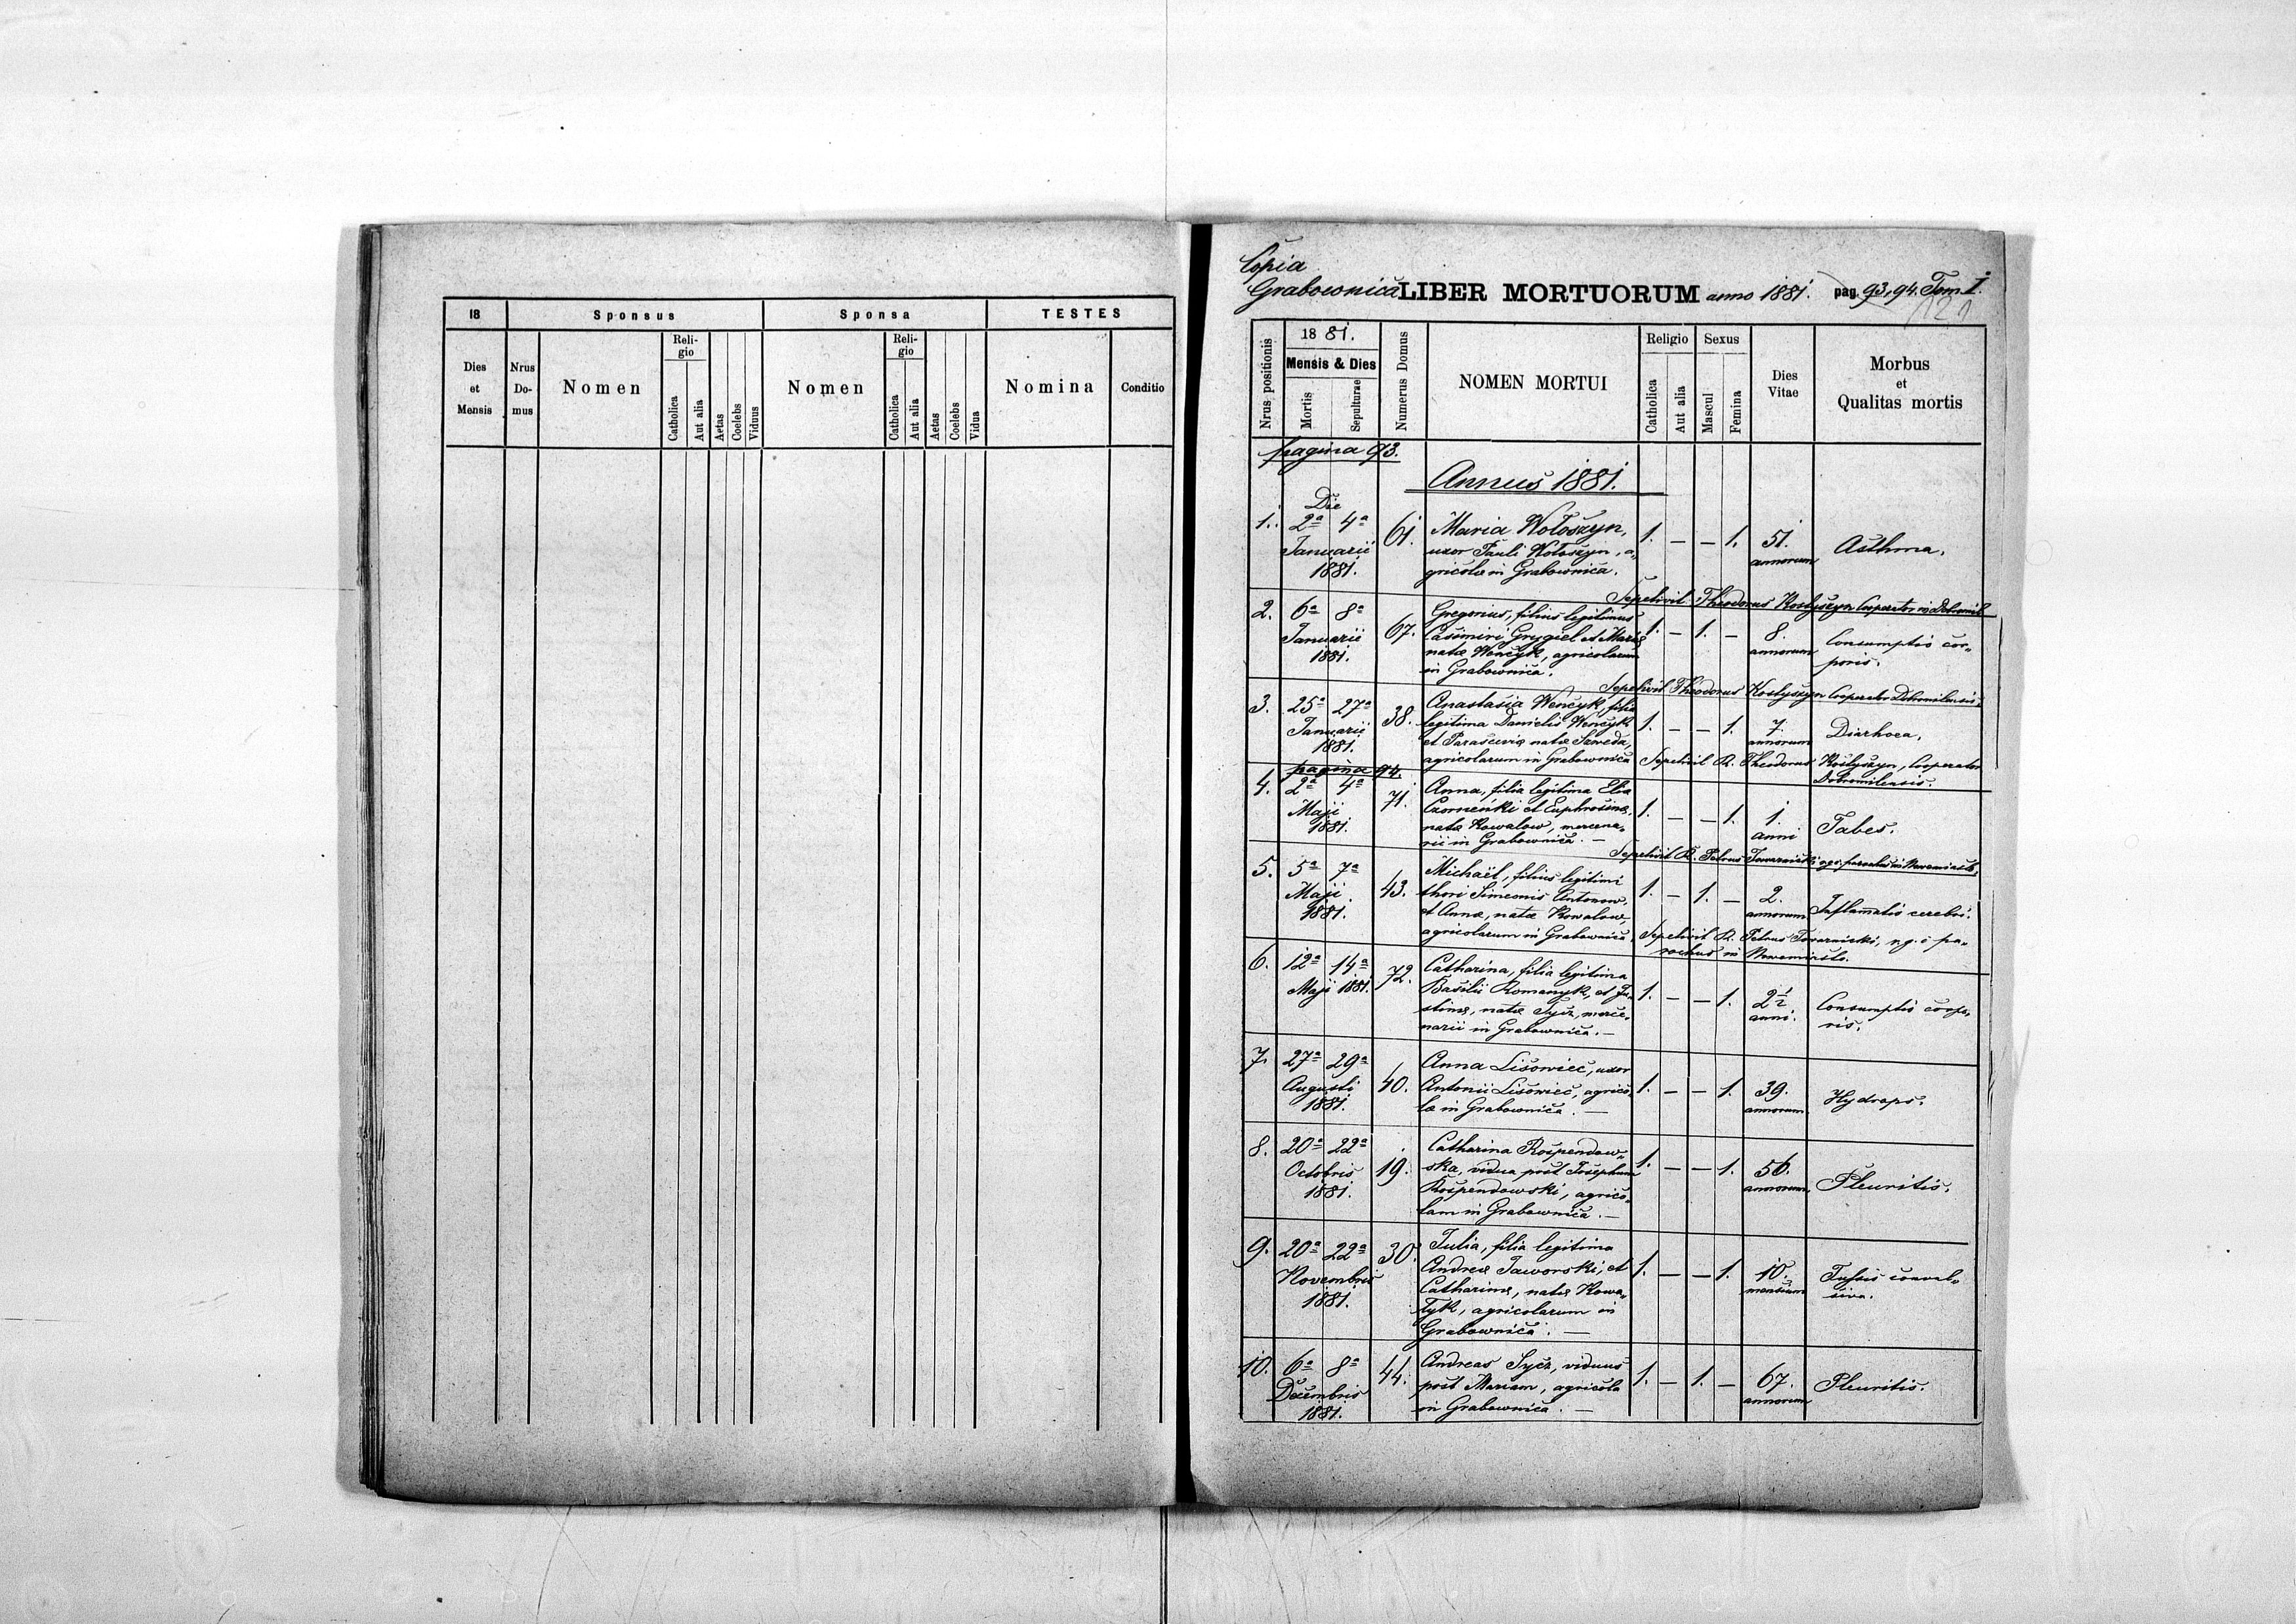 18 Sponsus Sponsa TESTES
Dies et Mensis
Nrus Domus
Nomen
Religio
Catholica
Aut alia
Aetas
Coelebs
Viduus
Nomen
Religio
Catholica
Aut alia
Aetas
Coelebs
Vidua
Nomina
Conditio
Copia
Grabownica LIBER MORTUORUM anno 1881. pag. 93, 94. Tom I.
121
Nrus positionis
1881.
Mensis & Dies
Mortis
Sepulturae
Numerus Domus
NOMEN MORTUI
Religio
Catholica
Aut alia
Sexus
Mascul
Femina
Dies
Vitae
Morbus
et
Qualitas mortis
pagina 93.
Annus 1881.
Die
1. 2a 4a 61. Maria Wołoszyn, 1. — — 1. 51. Asthma.
Januarii uxor Pauli Wołoszyn, a„ annorum
1881. gricolæ in Grabownica.
Sepelivit Theodorus Kostyszyn Cooperator in Dobromil
2. 6a 8a 67. Gregorius, filius legitimus 1. — 1. — 8. Consumptio cor„
Januarii Casimiri Grygiel et Mariæ annorum poris.
1881. natæ Wenčyk, agricolarum
in Grabownica.
Sepelivit Theodorus Kostyszyn Cooperator Dobromilensis.
3. 25a 27a 38. Anastasia Wenčyk, filia 1. — — 1. 7. Diarhoea.
Januarii legitima Danielis Wenčyk annorum
1881. et Parasceviæ natæ Szweda,
agricolarum in Grabownica Sepelivit R. Theodorus Kostyszyn, Cooperator
Dobromilensis.
pagina 94.
4. 2a 4a 71. Anna, filia legitima Eliæ 1. — — 1. 1. Tabes.
Maji Czorneńki et Euphrosinæ, anni
1881. natæ Kowalow, mercena„
rii in Grabownica. —
Sepelivit R. Petrus
5. 5a 7a 43. Michaël, filius legitimi 1. — 1. — 2. Inflamatio cerebri.
Maji thori Simeonis Antonow, annorum
1881. et Annæ, natæ Kowalow,
agricolarum in Grabownica, Sepelivit R. Petrus Towarnicki, n. g. c. pa„
rochus in
6. 12a 14a 72. Catharina, filia legitima 1. — — 1. 2½ Consumptio corpo„
Maji 1881. Basilii Romanyk, et Ju„ anni. ris.
stinæ, natæ Sycz, merce„
narii in Grabownica. —
7. 27a 29a 40. Anna Lisowiec, uxor 1. — — 1. 39. Hydrops.
Augusti Antonii Lisowiec, agrico„ annorum
1881. læ in Grabownica. —
8. 20a 22a 19. Catharina Rospendow„ 1. — — 1. 56. Pleuritis.
Octobris ska, vidua post Josephum annorum
1881. Rospendowski, agrico„
lam in Grabownica. —
9. 20a 22a 30. Julia, filia legitima 1. — — 1. 10. Tussis convul„
Novembris Andreæ Jaworski, et mensium siva.
1881. Catharinæ, natæ Kowa„
łyk, agricolarum in
Grabownica. —
10. 6a 8a 44. Andreas Sycz, viduus 1. — 1. — 67. Pleuritis.
Decembris post Mariam, agricola annorum
1881. in Grabownica. —